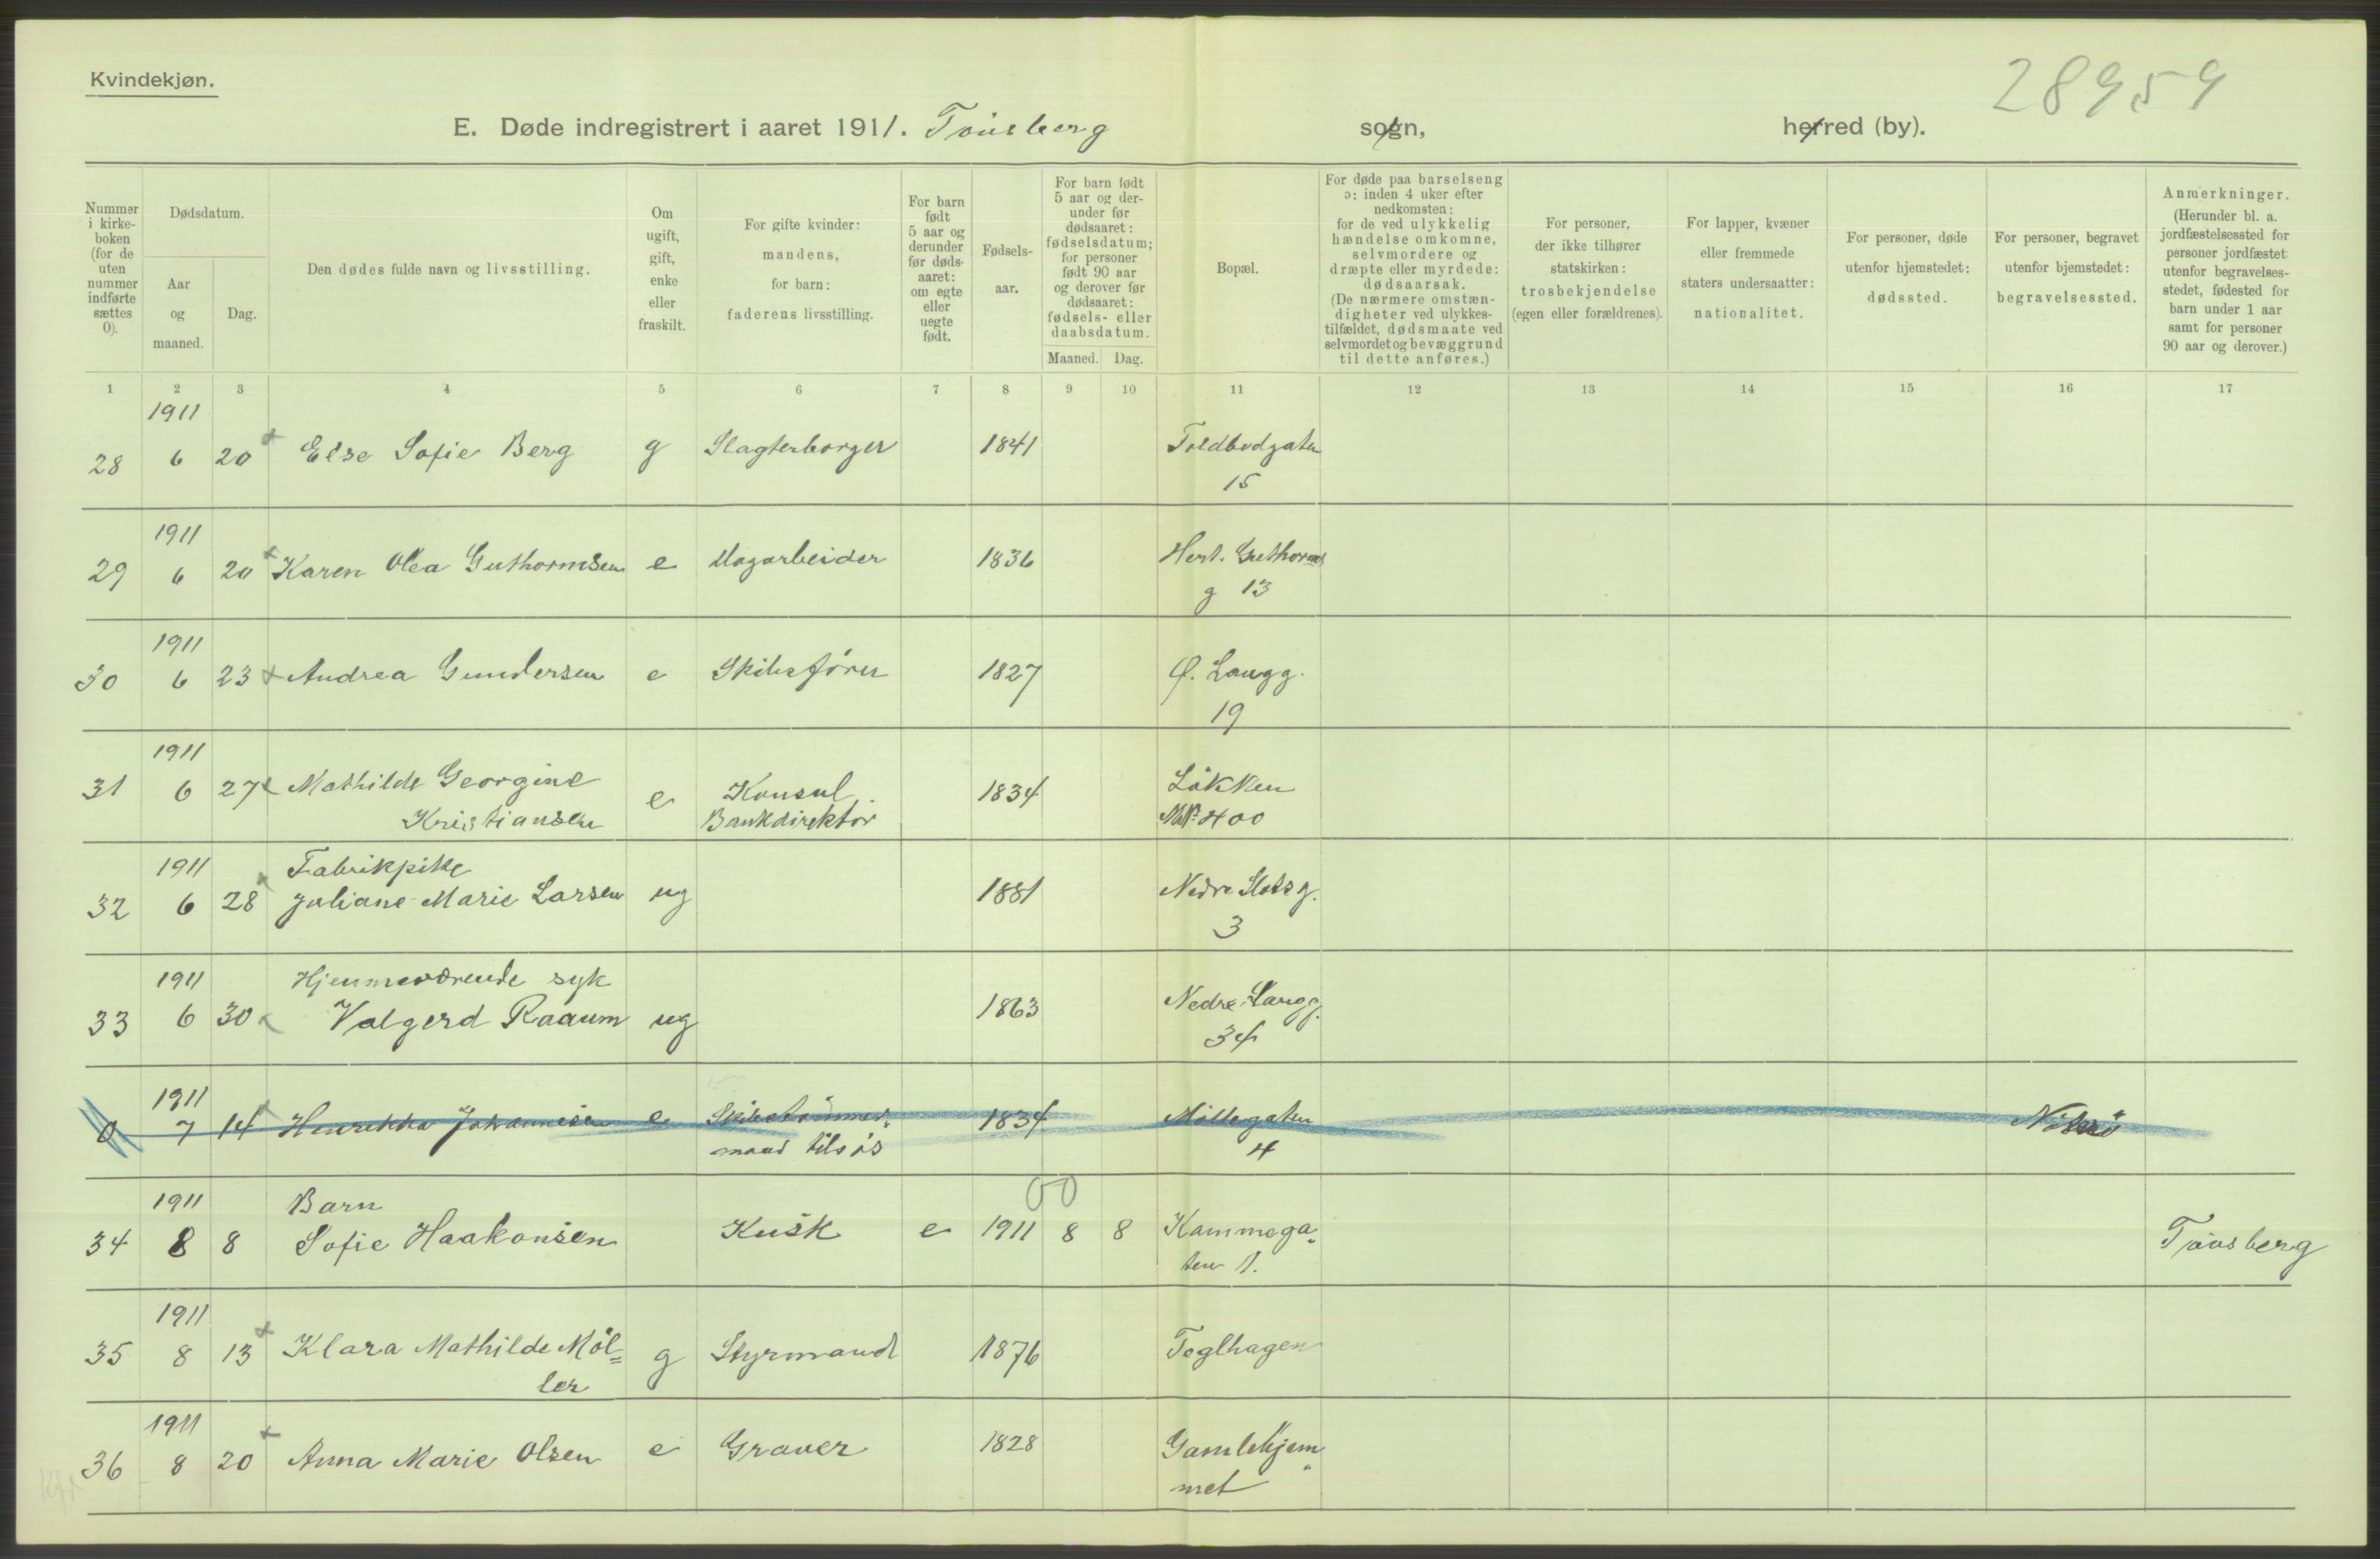 Kvindekjøn.
28959
E. Døde indregistrert i aaret 1911. Tønsberg sogn, herred (by).
Nummer i kirke-boken (for de uten nummer indførte sættes 0).
Dødsdatum.
Aar og maaned.
Dag.
Den dødes fulde navn og livsstilling.
Om ugift, gift, enke eller fraskilt.
For gifte kvinder: mandens, for barn: faderens livsstilling.
For barn født 5 aar og derunder før døds-aaret: om egte eller uegte født.
Fødsels-aar.
For barn født 5 aar og der-under før dødsaaret: fødselsdatum; for personer født 90 aar og derover før dødsaaret: fødsels- eller daabsdatum.
Maaned. Dag.
Bopæl.
For døde paa barselseng ɔ: inden 4 uker efter nedkomsten: for de ved ulykkelig hændelse omkomne, selvmordere og dræpte eller myrdede: dødsaarsak. (De nærmere omstæn-digheter ved ulykkes-tilfældet, dødsmaate ved selvmordet og bevæggrund til dette anføres.)
For personer, der ikke tilhører statskirken: trosbekjendelse (egen eller forældrenes).
For lapper, kvæner eller fremmede staters undersaatter: nationalitet.
For personer, døde utenfor hjemstedet: dødssted.
For personer, begravet utenfor hjemstedet: begravelsessted.
Anmerkninger. (Herunder bl. a. jordfæstelsessted for personer jordfæstet utenfor begravelses-stedet, fødested for barn under 1 aar samt for personer 90 aar og derover.)
1 2 3 4 5 6 7 8 9 10 11 12 13 14 15 16 17
1911
28 6 20 Else Sofie Berg g Slagterborger 1841 Toldbodgaten
15
1911
29 6 20 Karen Olea Guthormsen e Dagarbeider 1836 Hert. Guthorms
g 13
1911
30 6 23 Andrea Gundersen e Skibsfører 1827 Ø. Langg.
19
1911
31 6 27 Mathilde Georgine e Konsul 1834 Løkken
Kristiansen Bankdirektør MNo 400
1911 Fabrikpike
32 6 28 Juliane Marie Larsen ug 1881 Nedre Slotsg.
3
1911 Hjemmeværende syk
33 6 30 Valgerd Raaum ug 1863 Nedre Langg.
34
1911
0 7 14 Henrikka Johannesen e Skibstømmer- 1834 Møllegaten Nøterø
mand tilsjøs 4
1911 Barn 00
34 8 8 Sofie Haakonsen Kusk e 1911 8 8 Kammega- Tønsberg
ten 1.
1911
35 8 13 Klara Mathilde Møl= g Styrmand 1876 Teglhagen
ler
1911
36 8 20 Anna Marie Olsen e Graver 1828 Gamlehjem-
met